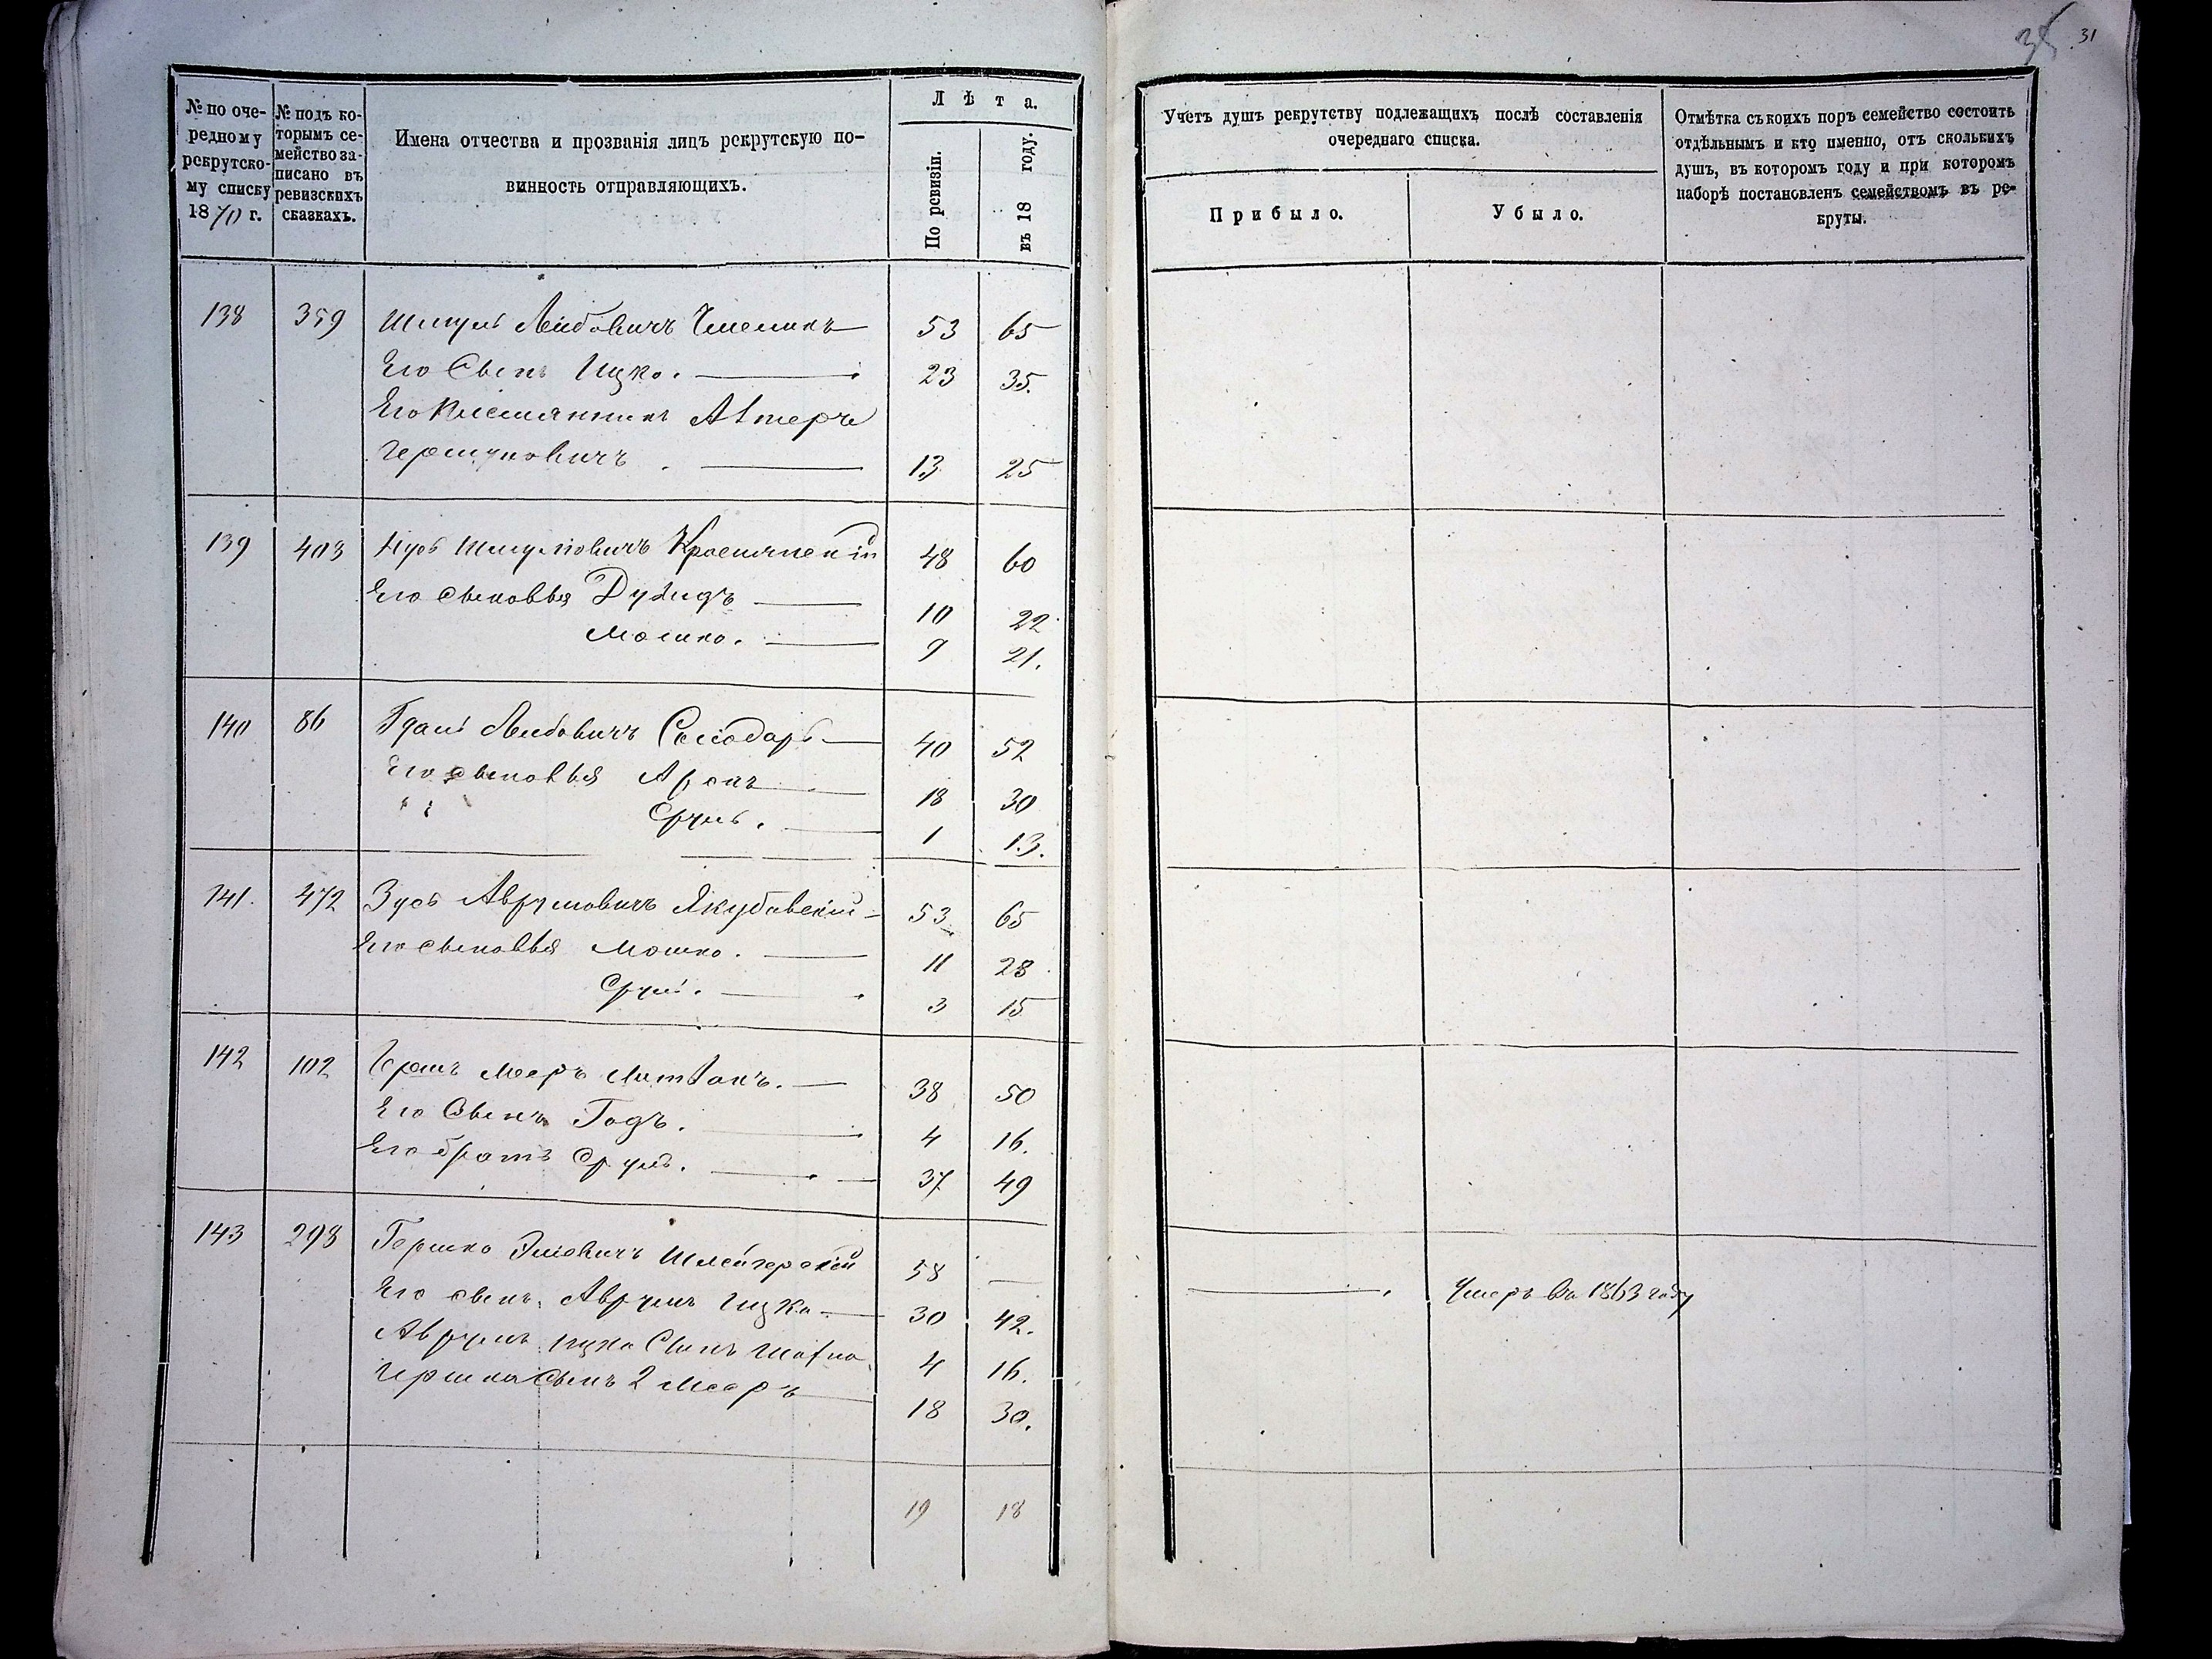 31
№ по оче-
редному
рекрутско-
му списку
1870 г.
№ подъ ко-
торымъ се-
мейство за-
писано въ
ревизскихъ
сказкахъ.
Имена отчества и прозванія лицъ рекрутскую по-
винность отправляющихъ.
Лѣта.
По ревизіи.
въ 18 году.
Учетъ душъ рекрутству подлежащихъ послѣ составленія
очереднаго списка.
Прибыло.
Убыло.
Отмѣтка съ коихъ поръ семейство состоитъ
отдѣльнымъ и кто именно, отъ сколькихъ
душъ, въ котором году и при которомъ
наборѣ постановленъ семействомъ въ ре-
круты.
138 359 Шмуль Лейбовичъ 53 65
Его Сынъ Ицко. 23 35.
Его Племянникъ Алтеръ
Гершуновичъ 13 25
139 403 Нусъ Шмулiовичъ 48 60
Его сыновья Дувидъ 10 22
Мошко. 9 21.
140 86 Лейбовичъ 40 52
Его сыновья Аронъ 18 30
Сруль. 1 13.
141. 472 Зусь Аврумовичъ Якубовскій 53 65
Его сыновья Мошко. 11 23
Сруль. 3 15
142 102 Гершъ Мееръ Литвакъ. 38 50
Его Сынъ Годъ. 4 16.
Его братъ Сруль. 37 49
143 298 Гершко 58 —
Его сынъ Аврумъ Ицко 30 42. Умеръ въ 1863 году
Аврумъ Ицка Сынъ 4 16.
Гершка Сынъ 2 Мееръ 18 30.
19 18